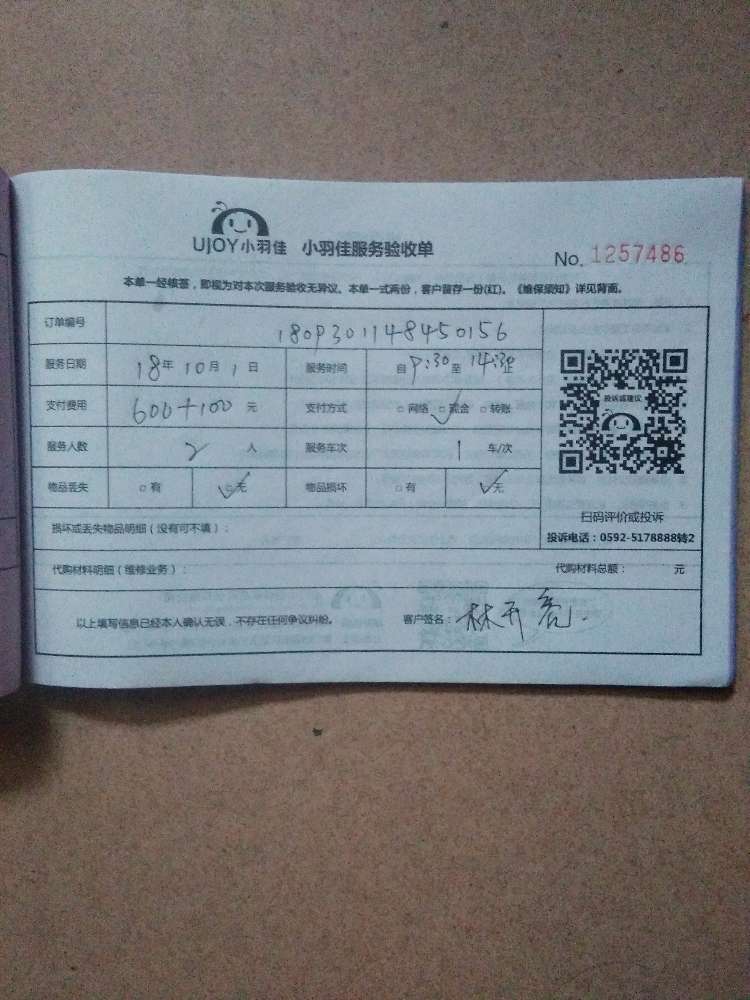 UJOY小羽佳 小羽佳服务验收单
No. 1257486
本单一经核签，即视为对本次服务验收无异议。本单一式两份，客户留存一份(红)。《维保须知》详见背面。
订单编号 1809301148450156
服务日期 18年10月1日 服务时间 自9:30至14:30止
支付费用 600+100元 支付方式 □网络 □现金 □转账
服务人数 2人 服务车次 1车/次
物品丢失 □有 □无 物品损坏 □有 □无
投诉或建议
扫码评价或投诉
投诉电话：0592-5178888转2
损坏或丢失物品明细（没有可不填）：
代购材料明细（维修业务）： 代购材料总额： 元
以上填写信息已经本人确认无误，不存在任何争议纠纷。 客户签名：林开